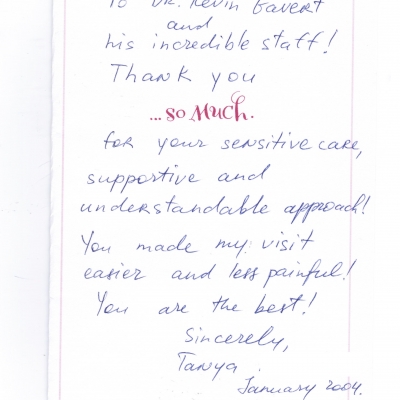 To Dr. Kevin Gavert
and
his incredible staff!
Thank you
...so much.
for your sensitive care,
supportive and
understandable approach!
You made my visit
easier and less painful!
You are the best!
Sincerely,
Tanya
January 2004.